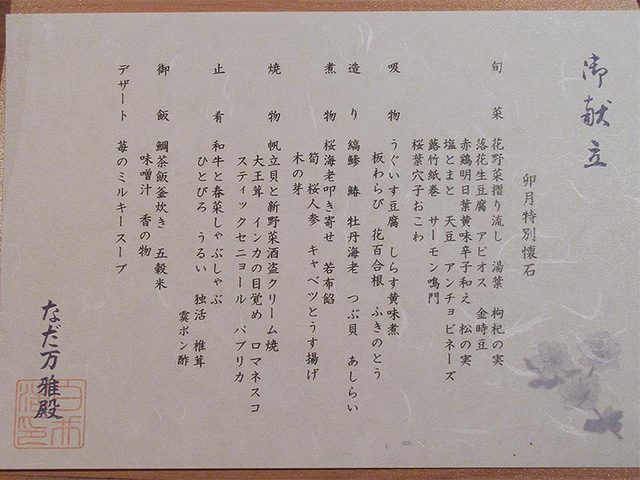 御献立
卯月特別懐石
旬菜 花野菜摺り流し 湯葉 枸杞の実
落花生豆腐 アピオス 金時豆
赤鶏明日葉黄味辛子和え 松の実
塩とまと 天豆 アンチョビネーズ
蕗竹紙巻 サーモン鳴門
桜葉穴子おこわ
吸物 うぐいす豆腐 しらす黄味煮
板わらび 花百合根 ふきのとう
造り 縞鯵 鰆 牡丹海老 つぶ貝 あしらい
煮物 桜海老叩き寄せ 若布餡
筍 桜人参 キャベツとうす揚げ
木の芽
焼物 帆立貝と新野菜酒盗クリーム焼
大王茸 インカの目覚め ロマネスコ
スティックセニョール パプリカ
止肴 和牛と春菜しゃぶしゃぶ
ひとびろ うるい 独活 椎茸
雲ポン酢
御飯 鯛茶飯釜炊き 五穀米
味噌汁 香の物
デザート 苺のミルキースープ
なだ万雅殿